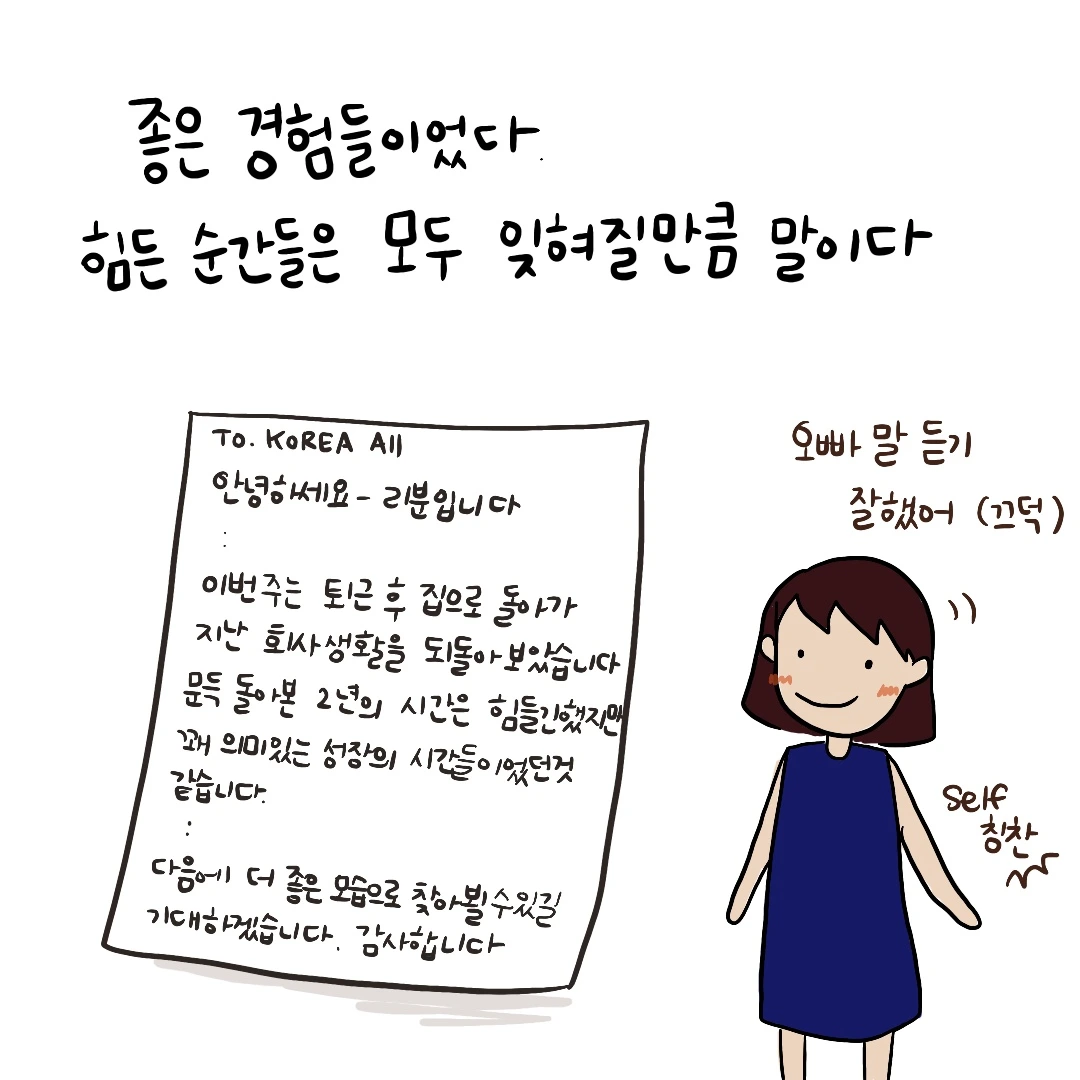 좋은 경험들이었다.
힘든 순간들은 모두 잊혀질만큼 말이다
To. KOREA All
안녕하세요- 리분입니다
:
이번주는 퇴근 후 집으로 돌아가
지난 회사생활을 되돌아보았습니다
문득 돌아본 2년의 시간은 힘들긴했지만
꽤 의미있는 성장의 시간들이었던것
같습니다.
:
다음에 더 좋은 모습으로 찾아뵐 수 있길
기대하겠습니다. 감사합니다
오빠 말 듣기
잘했어 (끄덕)
Self
칭찬